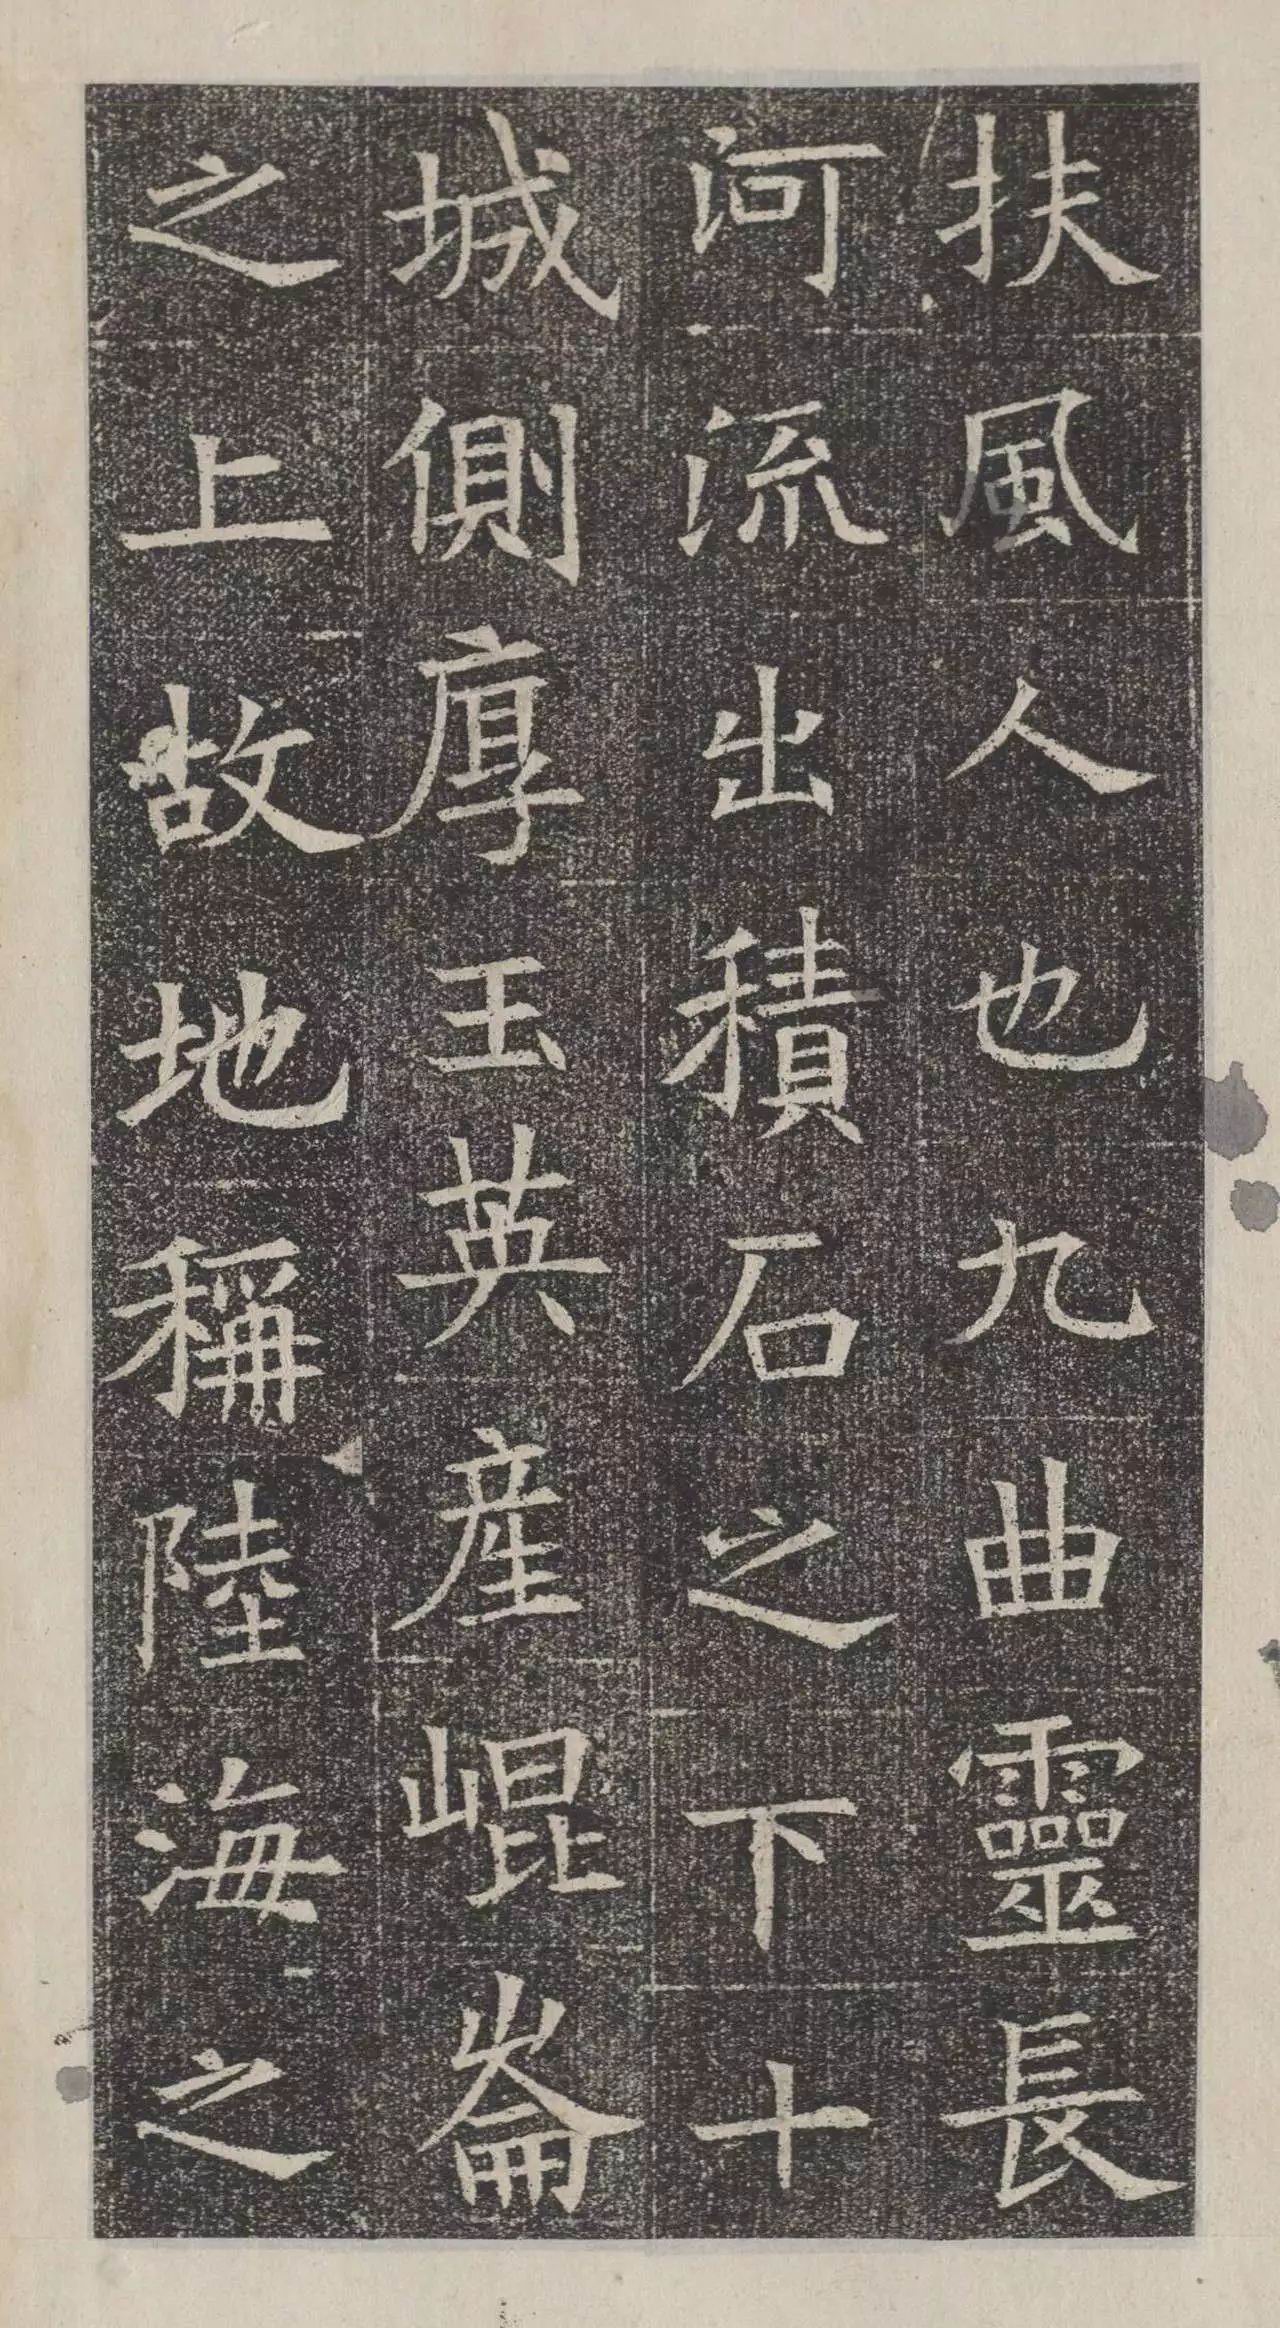 扶風人也九曲靈長
河流出積石之下十
城側厚玉英產崐崘
之上故地稱陸海之